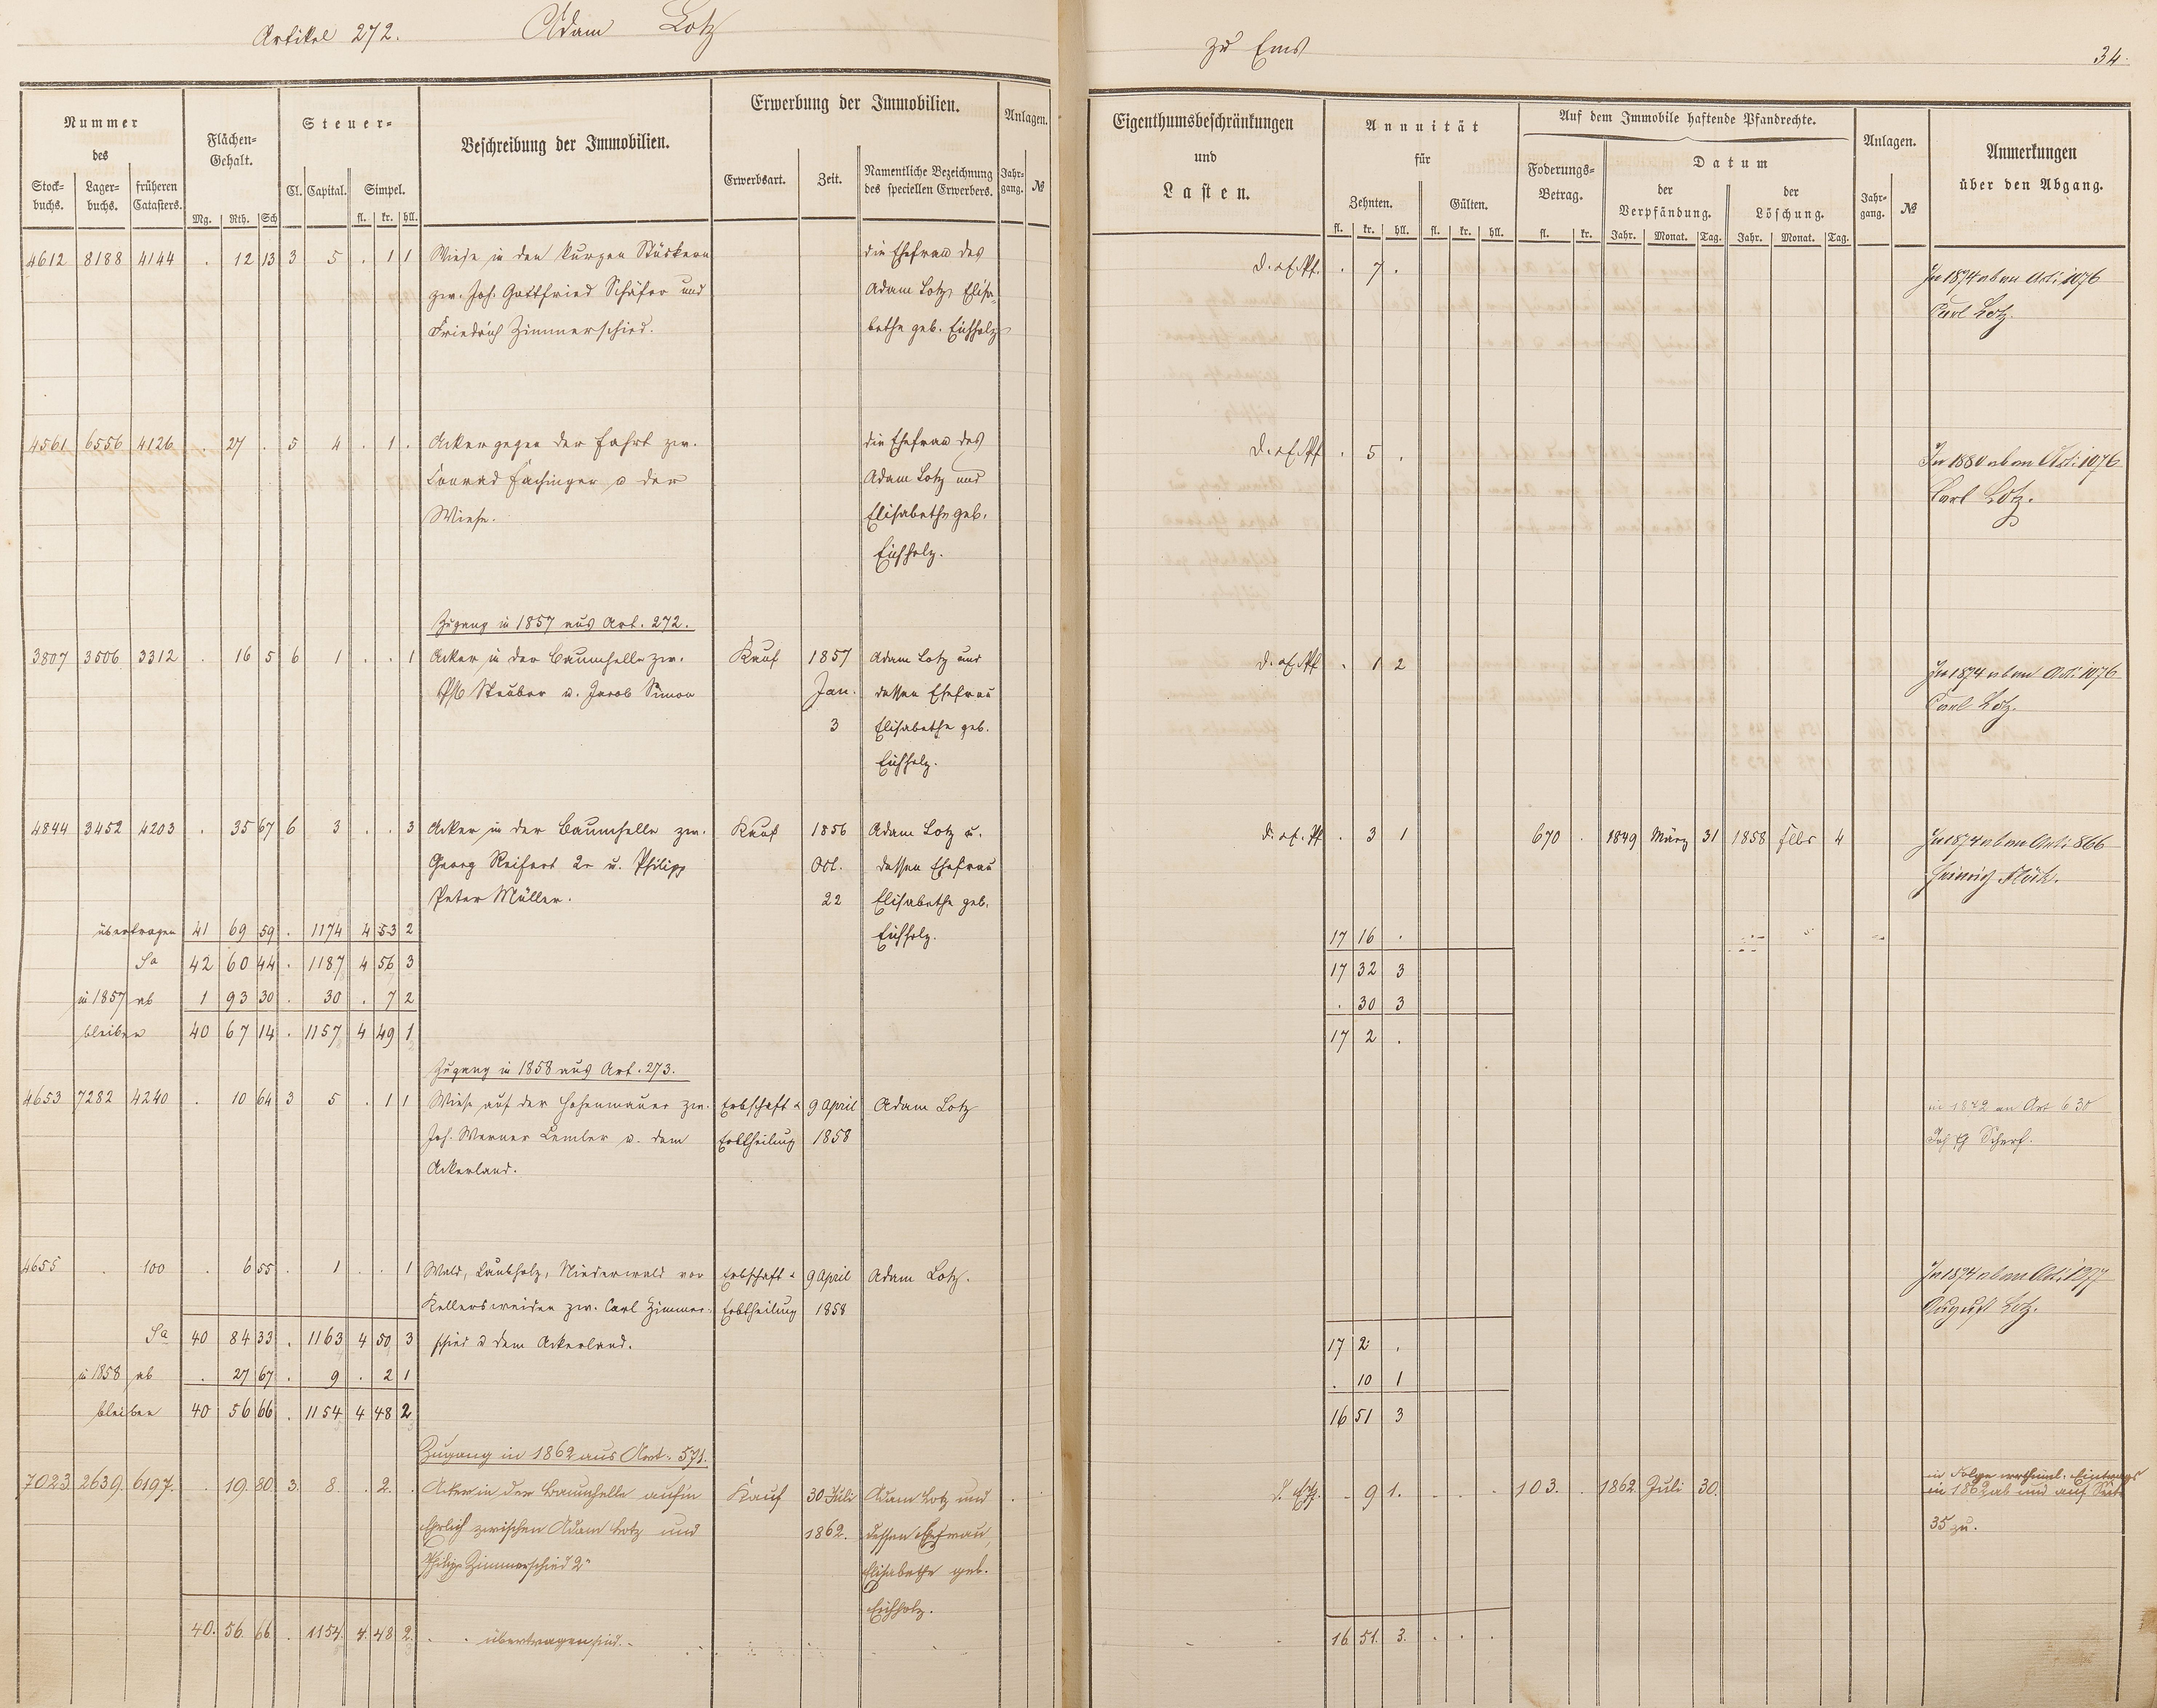 Artikel 272. Adam Lotz
zu Ems 34.
Nummer
des
Stock-
buchs.
Lager-
buchs.
früheren
Catasters.
Flächen-
Gehalt.
Mg. Rth. Sch
Steuer-
Cl. Capital. Simpel.
fl. kr. hll.
Beschreibung der Immobilien.
Erwerbung der Immobilien.
Erwerbsart. Zeit.
Namentliche Bezeichnung
des speciellen Erwerbers.
Anlagen.
Jahr-
gang. №
Eigenthumsbeschränkungen
und
Lasten.
Annuität
für
Zehnten. Gülten.
fl. kr. hll. fl. kr. hll.
Auf dem Immobile haftende Pfandrechte.
Foderungs-
Betrag.
fl. kr.
Datum
der
Verpfändung.
Jahr. Monat. Tag.
der
Löschung.
Jahr. Monat. Tag.
Anlagen.
Jahr-
gang. №
Anmerkungen
über den Abgang.
4612 8188 4144 . 12 13 3 5 . 1 1 Wiese in den kurzen Stückern die Ehefrau des
zw. Joh. Gottfried Schäfer und Adam Lotz Elisa-
Friedrich Zimmerschied. bethe geb. Eichholz
. 7 . In 1874 ab an Art: 1076
Carl Lotz.
4561 6556 4126 . 27 . 5 4 . 1 . Acker gegen der Fahrt zw. die Ehefrau des
Conrad Fachinger u der Adam Lotz und
Wiese. Elisabethe geb.
Eichholz.
. 5 . In 1880 ab an Art: 1076
Carl Lotz.
Zugang in 1857 aus Art. 272.
3807 3506 3312 . 16 5 6 1 . . 1 Acker in der Baumhelle zw. Kauf 1857 Adam Lotz und
Steuber u. Jacob Simon Jan. dessen Ehefrau
3 Elisabethe geb.
Eichholz.
. 1 2 In 1874 ab an Art: 1076
Carl Lotz.
4844 3452 4203 . 35 67 6 3 . . 3 Acker in der Baumhelle zw. Kauf 1856 Adam Lotz u.
Georg Reifert 2r u. Philipp Oct. dessen Ehefrau
Peter Müller. 22 Elisabethe geb.
Eichholz.
. 3 1 670 . 1849 März 31 1858 Febr 4 In 1874 ab an Art: 866
Heinrich Flöck.
übertragen 41 69 59 . 1174 4 53 2 17 16 .
Sa 42 60 44 . 1187 4 56 3 17 32 3
in 1857 ab 1 93 30 . 30 . 7 2 . 30 3
bleiben 40 67 14 . 1157 4 49 1 17 2 .
Zugang in 1858 aus Art. 273.
4653 7282 4240 . 10 64 3 5 . 1 1 Wiese auf der Hohenmauer zw. Erbschaft & 9 April Adam Lotz
Joh. Werner Lemler u. dem Erbtheilung 1858
Ackerland.
in 1872 an Art 630
Joh Scherf.
4655 . 100 . 6 55 . 1 . . 1 Wald, Laubholz, Niederwald vor Erbschaft & 9 April Adam Lotz.
Kellersweiden zw. Carl Zimmer- Erbtheilung 1858
schied u dem Ackerland.
In 1874 ab an Art: 1277
August Lotz.
Sa 40 84 33 . 1163 4 50 3 17 2 .
in 1858 ab . 27 67 . 9 . 2 1 . 10 1
bleiben 40 56 66 . 1154 4 48 2 16 51 3
Zugang in 1862 aus Art. 571.
7023. 2639. 6197. . 19. 80 3. 8. . 2. . Acker in der Baumhelle auf'm Kauf 30 Juli Adam Lotz und
Ehrlich zwischen Adam Lotz und 1862. dessen Ehefrau,
Philipp Zimmerschied 2r Elisabethe geb.
Eichholz.
. 9 1. 103. . 1862. Juli 30. in Folge Eintrags
in 1862 ab und auf Seite
35 zu.
40. 56. 66. . 1154. 4. 48 2. übertragen sind. 16 51. 3.